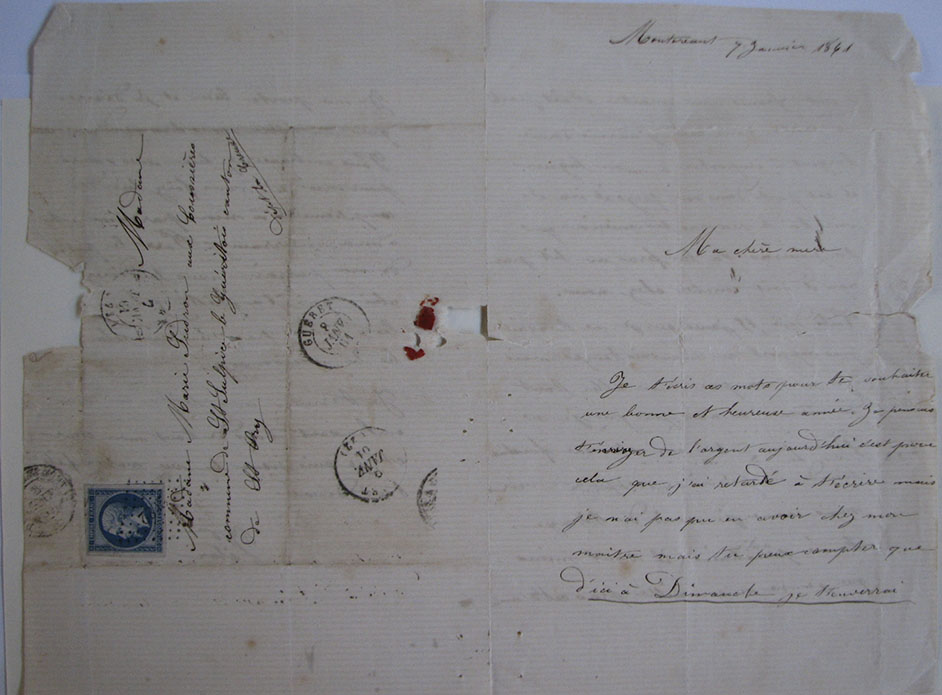 7 Janvier 1861
Ma chère mère
Je t'écris ces mots pour te souhaiter
une bonne et heureuse année. J'ai pensais
t'envoyer de l'argent aujourd'hui c'est pour
cela que j'ai retardé à t'écrire mais
je n'ai pas pu en avoir chez mon
maitre mais tu peux compter que
d'ici à Dimanche je t'enverrai
Madame
Madame Marie aux
commune de St Sulpice le Guéretois canton
de St
GUÉRET
8
JANV
61